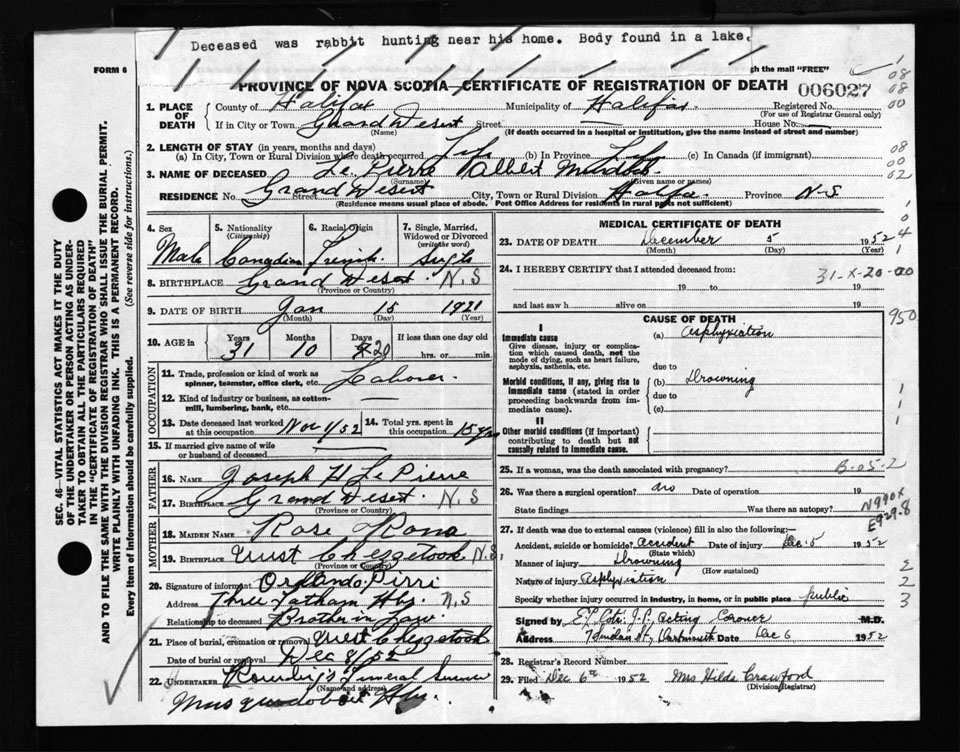 Deceased was rabbit hunting near his home. Body found in a lake.
FORM 6
gh the mail "FREE"
PROVINCE OF NOVA SCOTIA—CERTIFICATE OF REGISTRATION OF DEATH
006027
1. PLACE OF DEATH County of Halifax Municipality of Halifax Registered No.
(For use of Registrar General only)
If in City or Town Grand Desert Street House No. —
(Name) (If death occurred in a hospital or institution, give the name instead of street and number)
2. LENGTH OF STAY (in years, months and days)
(a) In City, Town or Rural Division where death occurred Life (b) In Province Life (c) In Canada (if immigrant)
3. NAME OF DECEASED Le Pierre Albert Murdock
(Surname) (Given name or names)
RESIDENCE No. Grand Desert Street City, Town or Rural Division Halifax Province N-S
(Residence means usual place of abode. Post Office Address for residents in rural parts not sufficient)
4. Sex 5. Nationality (Citizenship) 6. Racial Origin 7. Single, Married, Widowed or Divorced (write the word)
Male Canadian French Single
8. BIRTHPLACE Grand Desert N.S
(Province or Country)
9. DATE OF BIRTH Jan 15 1921
(Month) (Day) (Year)
10. AGE in Years Months Days If less than one day old
31 10 20 hrs. or min.
OCCUPATION
11. Trade, profession or kind of work as spinner, teamster, office clerk, etc. Laborer
12. Kind of industry or business, as cotton-mill, lumbering, bank, etc.
13. Date deceased last worked at this occupation Nov 1/52 14. Total yrs. spent in this occupation 15 yrs
15. If married give name of wife or husband of deceased —
FATHER
16. NAME Joseph H Le Pierre
17. BIRTHPLACE Grand Desert N.S
(Province or Country)
MOTHER
18. MAIDEN NAME Rose
19. BIRTHPLACE West Chezzetcook N.S,
(Province or Country)
20. Signature of informant Orlando Pirri
Address Three Fathom Hbr. N,S
Relationship to deceased Brother in Law
21. Place of burial, cremation or removal West Chezzetcook
Date of burial or removal Dec 8/52
22. UNDERTAKER Funeral
(Name and address)
Musquodoboit Hbr.
MEDICAL CERTIFICATE OF DEATH
23. DATE OF DEATH December 5 1952
(Month) (Day) (Year)
24. I HEREBY CERTIFY that I attended deceased from:
31-X-20-00
19 to 19
and last saw h alive on 19
CAUSE OF DEATH
I
Immediate cause (a) Asphyxiation
Give disease, injury or complication which caused death, not the mode of dying, such as heart failure, asphyxia, asthenia, etc.
due to
Morbid conditions, if any, giving rise to immediate cause (stated in order proceeding backwards from immediate cause). (b) Drowning
due to
(c)
II
Other morbid conditions (if important) contributing to death but not causally related to immediate cause.
25. If a woman, was the death associated with pregnancy? B-05-2
26. Was there a surgical operation? no Date of operation 19
State findings Was there an autopsy? N990X
E929.8
27. If death was due to external causes (violence) fill in also the following:—
Accident, suicide or homicide? accident Date of injury Dec. 5 1952
(State which)
Manner of injury Drowning
(How sustained)
Nature of injury Asphyxiation
Specify whether injury occurred in Industry, in home, or in public place public
Signed by J.P. Acting Coroner M.D.
Address Dartmouth Date Dec 6 1952
28. Registrar's Record Number
29. Filed Dec 6th 1952 Mrs Hilda Crawford
(Division Registrar)
08
08
00
08
00
02
1
0
4
1
950
1
1
1
2
2
3
SEC. 46—VITAL STATISTICS ACT MAKES IT THE DUTY
OF THE UNDERTAKER OR PERSON ACTING AS UNDER-
TAKER TO OBTAIN ALL THE PARTICULARS REQUIRED
IN THE "CERTIFICATE OF REGISTRATION OF DEATH"
AND TO FILE THE SAME WITH THE DIVISION REGISTRAR WHO SHALL ISSUE THE BURIAL PERMIT.
WRITE PLAINLY WITH UNFADING INK. THIS IS A PERMANENT RECORD.
Every item of Information should be carefully supplied. (See reverse side for instructions.)